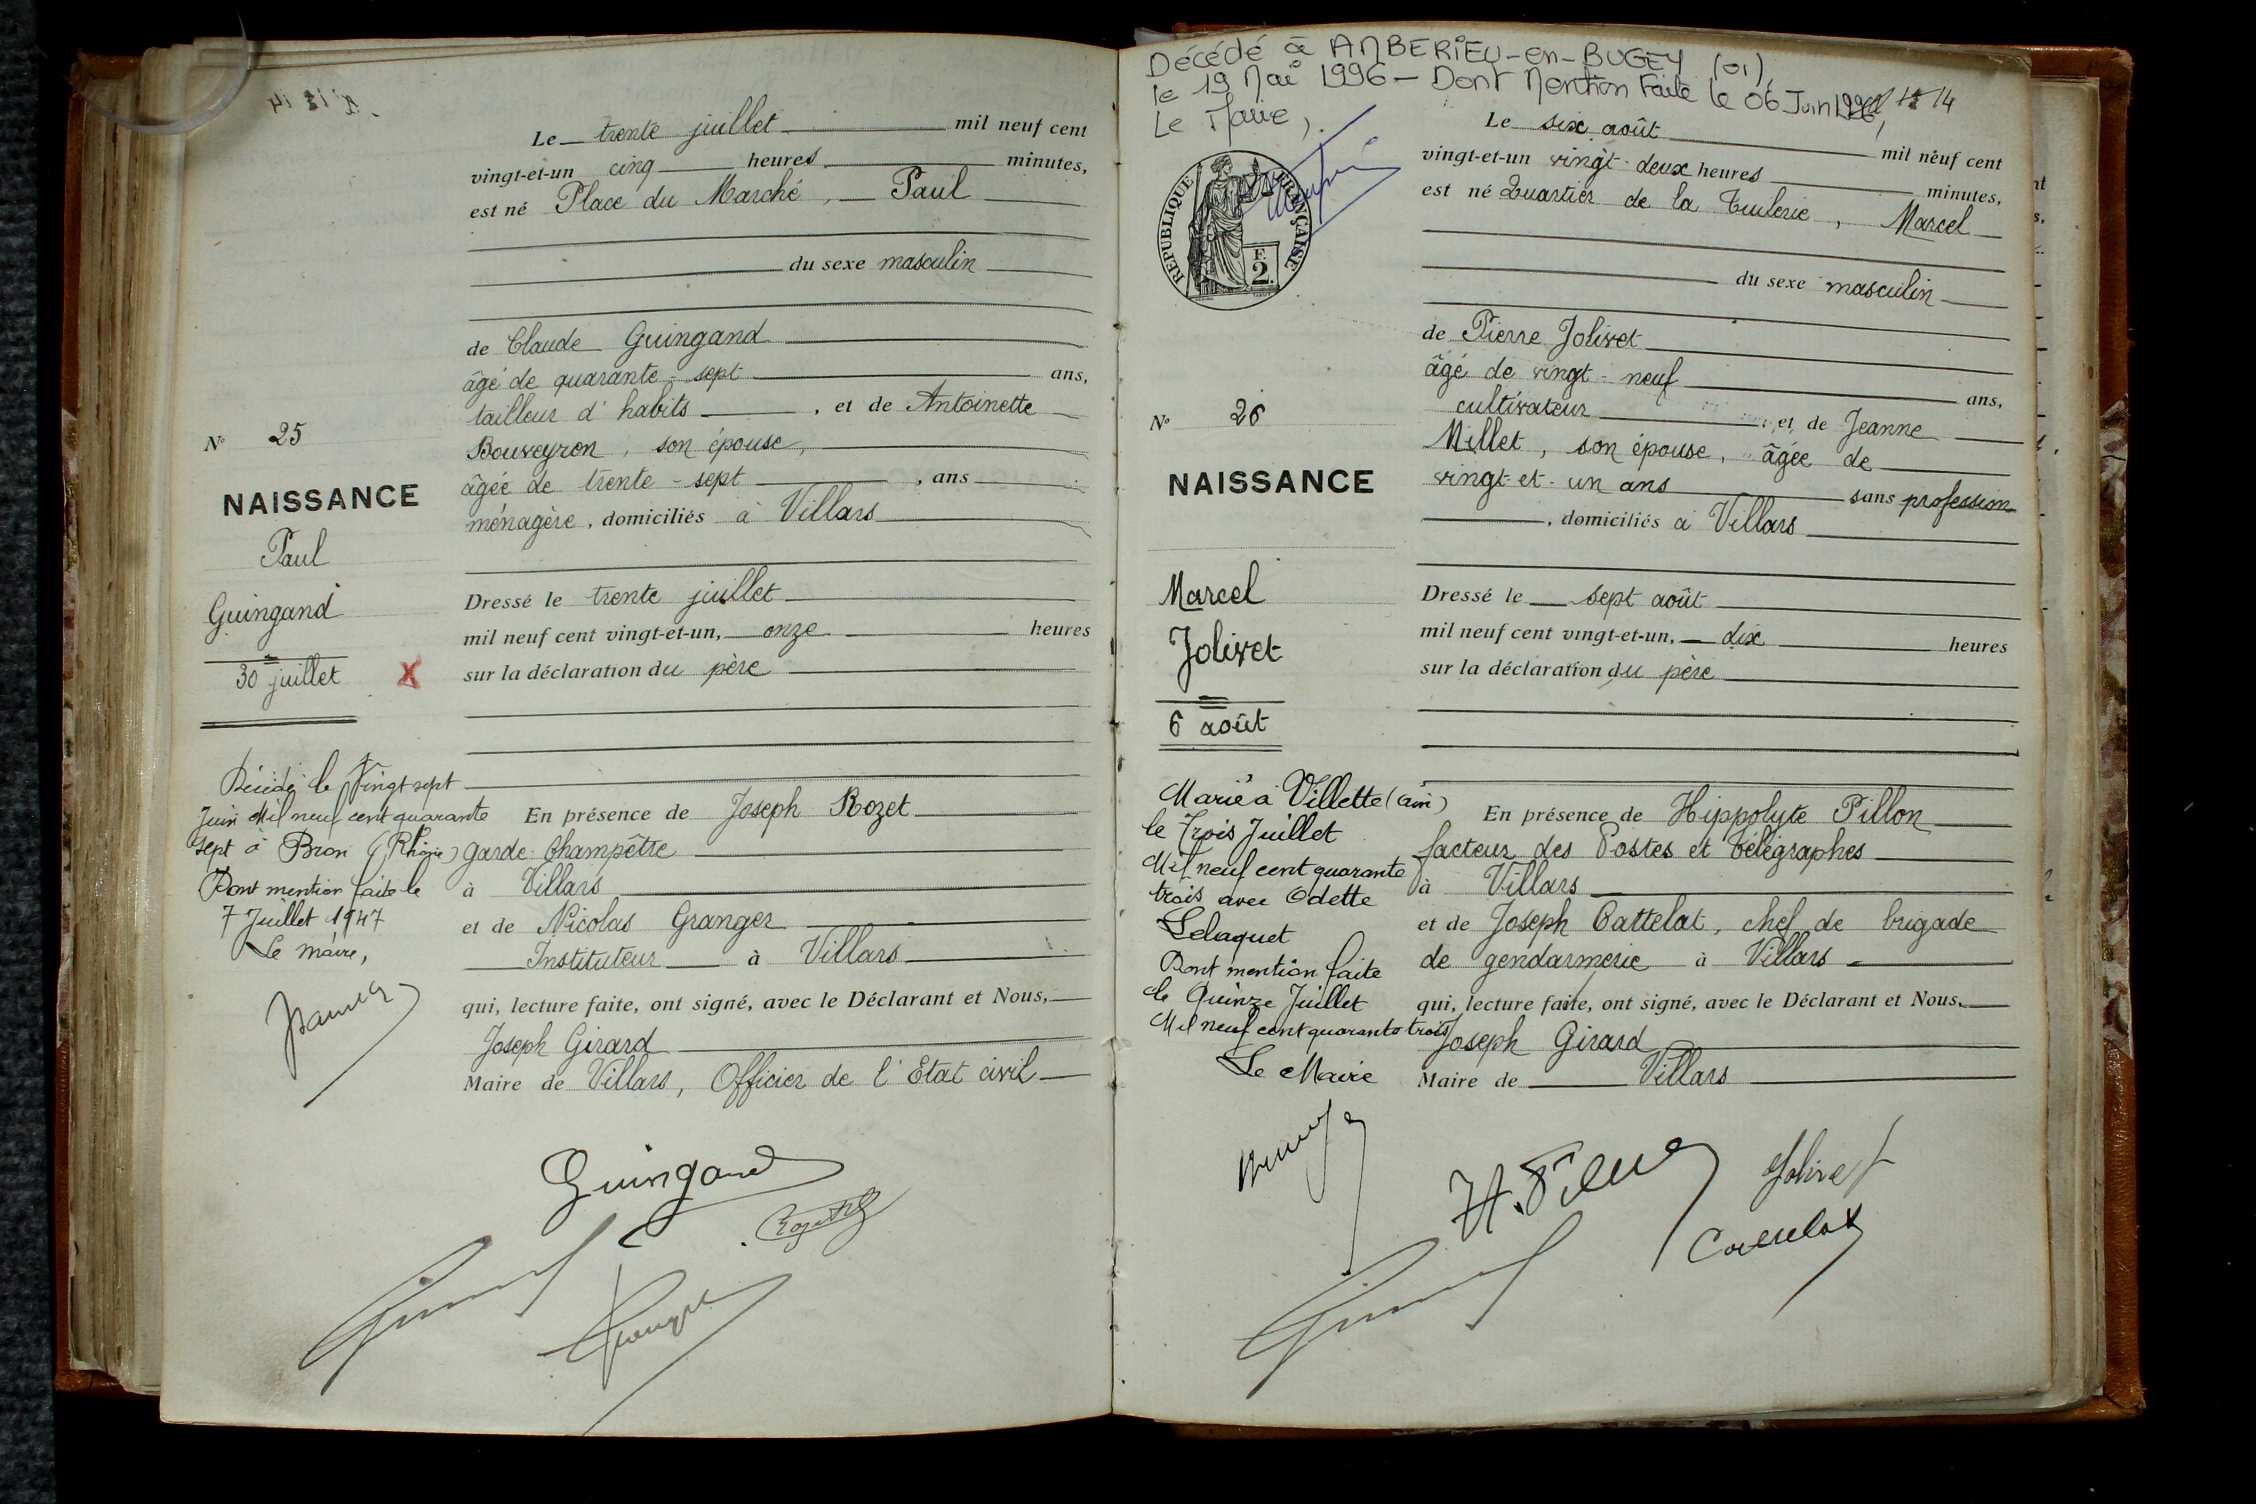 Le trente juillet mil neuf cent
vingt-et-un cinq heures minutes,
est né Place du Marché, Paul
du sexe masculin
de Claude Guingand
âgé de quarante-sept ans,
tailleur d'habits, et de Antoinette
Bouveyron, son épouse,
âgée de trente-sept, ans
ménagère, domiciliés à Villars
Dressé le trente juillet
mil neuf cent vingt-et-un, onze heures
sur la déclaration du père
En présence de Joseph Rozet
garde-Champêtre
à Villars
et de Nicolas Granger
Instituteur à Villars
qui, lecture faite, ont signé, avec le Déclarant et Nous,
Joseph Girard
Maire de Villars, Officier de l'Etat civil
Guingand
N° 25
NAISSANCE
Paul
Guingand
30 juillet
X
Décédé le Vingt sept
Juin Mil neuf cent quarante
sept à Bron (Rhône)
Dont mention faite le
7 Juillet 1947
Le maire,
Décédé à AMBERIEU-en-BUGEY (01),
le 19 Mai 1996 - Dont Mention Faite le 06 Juin 1996,
Le Maire,
14
REPUBLIQUE FRANÇAISE
F.
2.
Le six août mil neuf cent
vingt-et-un vingt-deux heures minutes,
est né Quartier de la Tuilerie, Marcel
du sexe masculin
de Pierre Jolivet
âgé de vingt-neuf ans,
cultivateur, et de Jeanne
Millet, son épouse, âgée de
vingt-et-un ans sans profession
, domiciliés à Villars
Dressé le sept août
mil neuf cent vingt-et-un, dix heures
sur la déclaration du père
En présence de Hippolyte Pillon
facteur des Postes et Télégraphes
à Villars
et de Joseph Cattelat, chef de brigade
de gendarmerie à Villars
qui, lecture faite, ont signé, avec le Déclarant et Nous,
Joseph Girard
Maire de Villars
Jolivet
N° 26
NAISSANCE
Marcel
Jolivet
6 août
Marié à Villette (Ain)
le Trois Juillet
Mil neuf cent quarante
trois avec Odette
Lelaquet
Dont mention faite
le Quinze Juillet
Mil neuf cent quarante trois
Le Maire